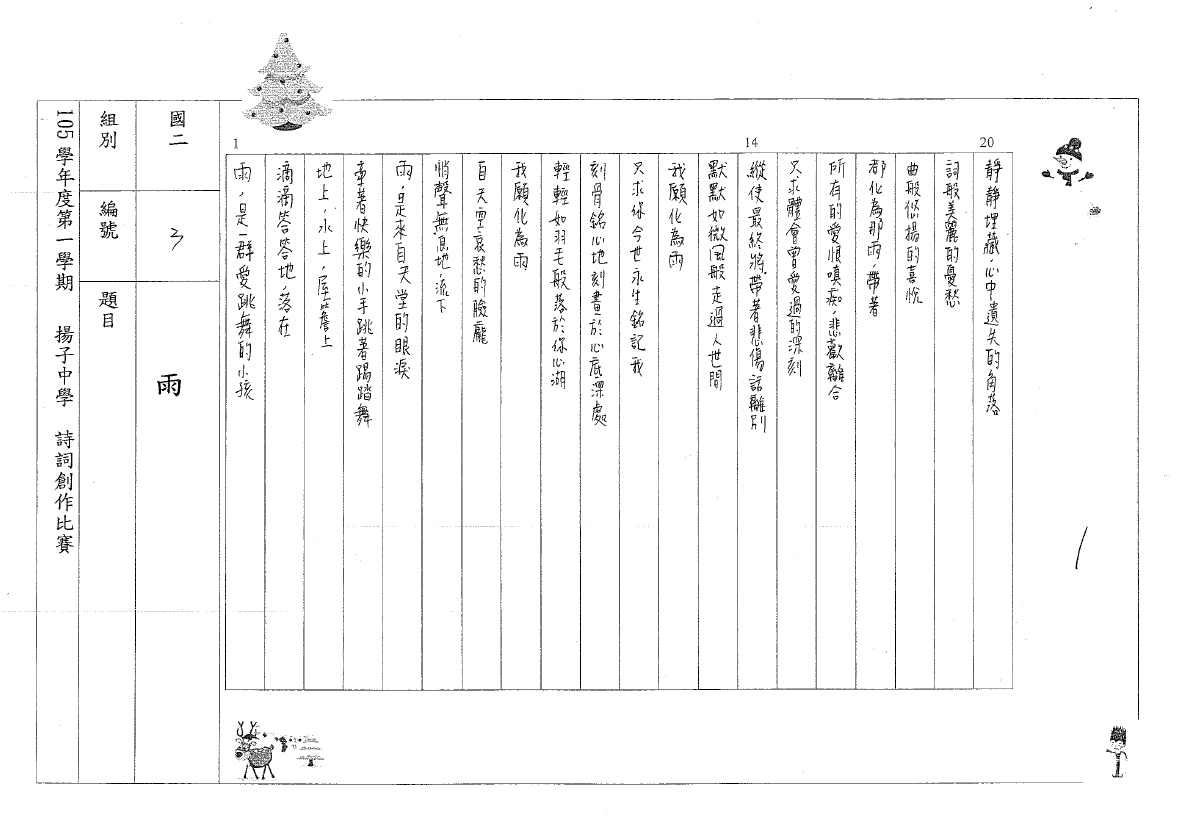 105 學年度第一學期 揚子中學 詩詞創作比賽
組別 國二
編號 3
題目 雨
1
14
20
雨，是一群愛跳舞的小孩
滴滴答答地，落在
地上，水上，屋簷上
牽著快樂的小手跳著踢踏舞
雨，是來自天堂的眼淚
悄聲無息地，流下
自天空哀愁的臉龐
我願化為雨
輕輕如羽毛般落於你心湖
刻骨銘心地刻畫於心底深處
只求你今世永生銘記我
我願化為雨
默默如微風般走過人世間
縱使最終將帶著悲傷話離別
只求體會曾愛過的深刻
所有的愛恨嗔痴，悲歡離合
都化為那雨，帶著
曲般悠揚的喜悅
詞般美麗的憂愁
靜靜埋藏，心中遺失的角落